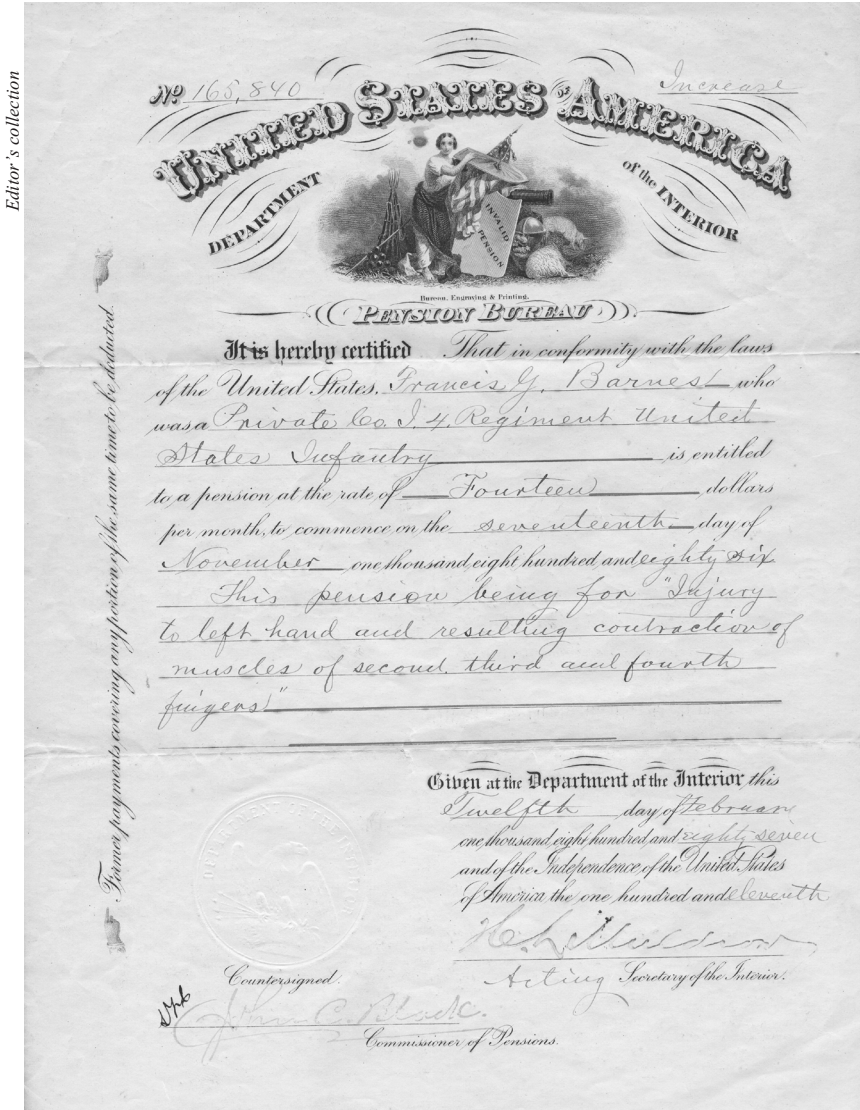 Editor's collection
No 165,840
Increase
UNITED STATES OF AMERICA
DEPARTMENT of the INTERIOR
INVALID
PENSION
Bureau, Engraving & Printing.
PENSION BUREAU
It is hereby certified That in conformity with the laws
of the United States, Francis Y. Barnes who
was a Private Co. I. 4 Regiment United
States Infantry is entitled
to a pension at the rate of Fourteen dollars
per month, to commence on the seventeenth day of
November one thousand eight hundred and eighty six
This pension being for "Injury
to left hand and resulting contraction of
muscles of second, third and fourth
fingers"
Former payments covering any portion of the same time to be deducted.
Given at the Department of the Interior this
Twelfth day of February
one thousand eight hundred and eighty seven
and of the Independence of the United States
of America the one hundred and eleventh
H. L. Muldrow
Acting Secretary of the Interior.
Countersigned.
John C. Black.
Commissioner of Pensions.